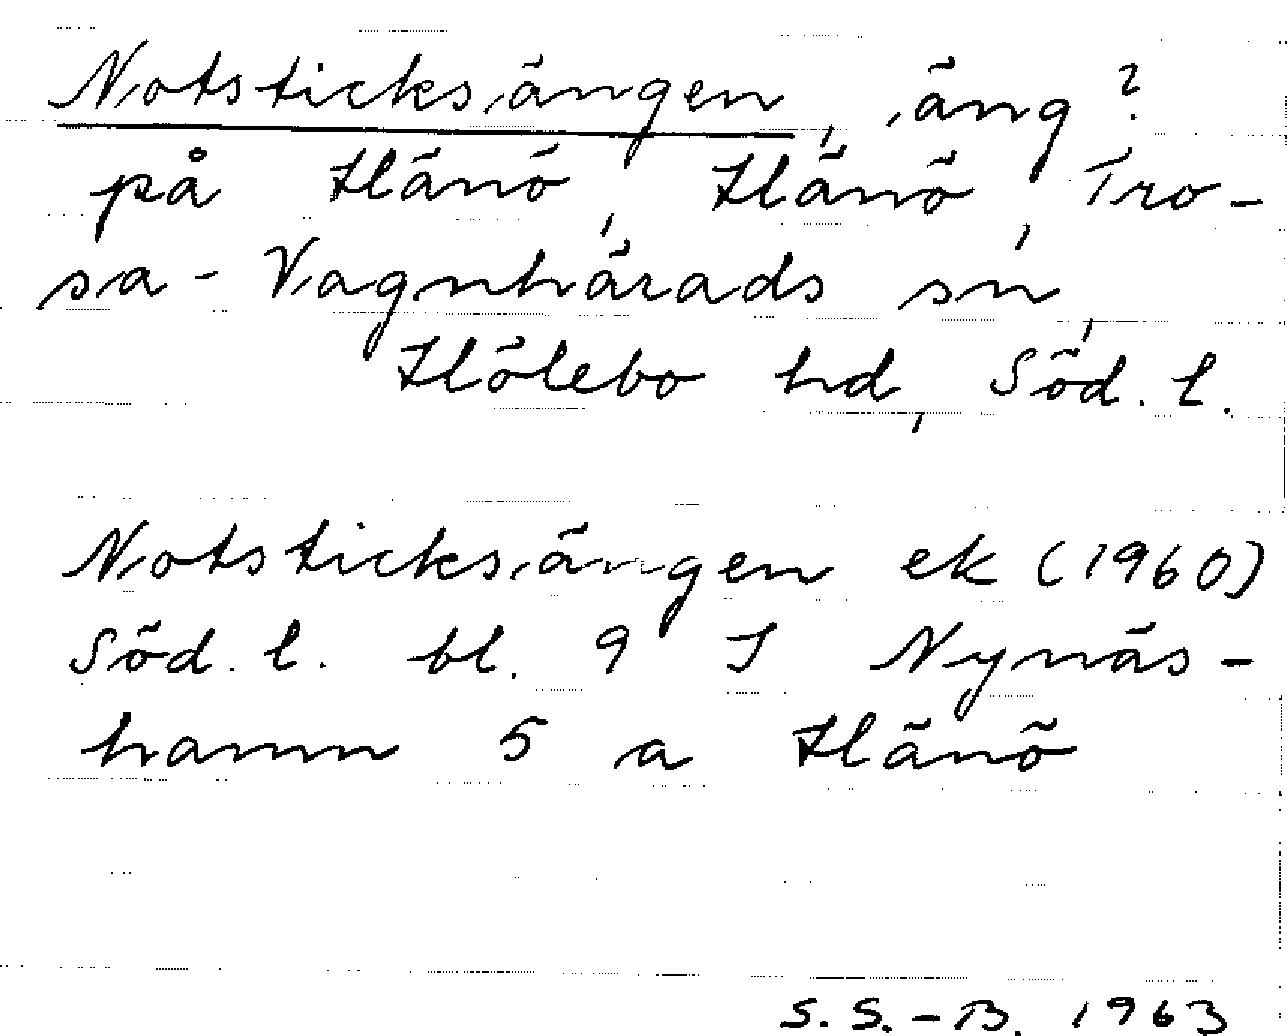 Notsticksängen, äng?
på Hänö, Hänö, Tro-
sa-Vagnhärads sn,
Hölebo hd, Söd. l.
Notsticksängen ek (1960)
Söd. l. bl. 9 J Nynäs-
hamn 5 a Hänö
S. S.-B. 1963